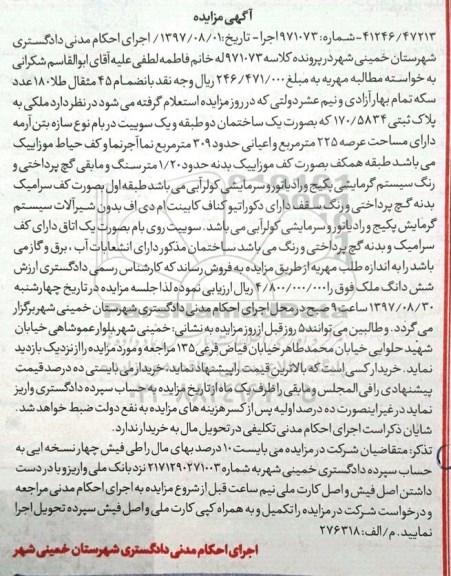 آگهی مزایده
۴۱۲۴۶/۴۷۲۱۳-شماره: ۹۷۱۰۷۳اجرا- تاریخ:۱۳۹۷/۰۸/۰۱ اجرای احکام مدنی دادگستری
شهرستان خمینی شهر در پرونده کلاسه ۹۷۱۰۷۳ له خانم فاطمه لطفی علیه آقای ابوالقاسم شکرانی
به خواسته مطالبه مهریه به مبلغ ۲۴۶/۴۷۱/۰۰۰ ریال وجه نقد بانضمام ۴۵ مثقال طلا ۱۸۰ عدد
سکه تمام بهار آزادی و نیم عشر دولتی که در روز مزایده استعلام گرفته می شود در نظر دارد ملکی به
پلاک ثبتی ۱۷۰/۵۸۳۴ که بصورت یک ساختمان دو طبقه و یک سوییت در بام نوع سازه بتن آرمه
دارای مساحت عرصه ۲۲۵ مترمربع و اعیانی حدود ۳۰۹ مترمربع نما آجرنما و کف حیاط موزاییک
می باشد طبقه همکف بصورت کف موزاییک بدنه حدود ۱/۲۰ متر سنگ و مابقی گچ پرداختی و
رنگ سیستم گرمایشی پکیج و رادیاتور و سرمایشی کولر آبی می باشد طبقه اول بصورت کف سرامیک
بدنه گچ پرداختی و رنگ سقف دارای دکوراتیو کناف کابینت ام دی اف بدون شیرآلات سیستم
گرمایش پکیج و رادیاتور و سرمایشی کولر آبی می باشد. سوییت روی بام بصورت یک اتاق دارای کف
سرامیک و بدنه گچ پرداختی و رنگ می باشد ساختمان مذکور دارای انشعابات آب ، برق و گاز می
باشد را به اندازه طلب مهریه از طریق مزایده به فروش رساند که کارشناس رسمی دادگستری ارزش
شش دانگ ملک فوق را ۴/۸۰۰/۰۰۰/۰۰۰ ریال ارزیابی نموده لذا جلسه مزایده در تاریخ چهارشنبه
۱۳۹۷/۰۸/۳۰ ساعت ۱۰ صبح در محل اجرای احکام مدنی دادگستری شهرستان خمینی شهر برگزار
می گردد. و طالبین می توانند ۵ روز قبل از روز مزایده به نشانی: خمینی شهر بلوار عموشاهی خیابان
شهید حلوایی خیابان محمدطاهر خیابان فیاض فرعی ۱۳۵ مراجعه و مورد مزایده را از نزدیک بازدید
نماید. خریدار کسی است که بالاترین قیمت را پیشنهاد نماید، خریدار می بایستی ده درصد قیمت
پیشنهادی را فی المجلس و مابقی را ظرف یک ماه از تاریخ مزایده به حساب سپرده دادگستری واریز
نماید در غیر اینصورت ده درصد اولیه پس از کسر هزینه های مزایده به نفع دولت ضبط خواهد شد.
شایان ذکر است اجرای احکام مدنی تکلیفی در تحویل مال به خریدار ندارد.
تذکر: متقاضیان شرکت در مزایده می بایست ۱۰ درصد بهای مال را طی فیش چهار نسخه ایی به
حساب سپرده دادگستری خمینی شهر به شماره ۲۱۷۱۲۹۰۲۷۱۰۰۳ نزد بانک ملی واریز و با در دست
داشتن اصل فیش و اصل کارت ملی نیم ساعت قبل از شروع مزایده به اجرای احکام مدنی مراجعه
و درخواست شرکت در مزایده را تکمیل و به همراه کپی کارت ملی و اصل فیش سپرده تحویل اجرا
نمایید. م/الف: ۲۷۶۳۱۸
اجرای احکام مدنی دادگستری شهرستان خمینی شهر